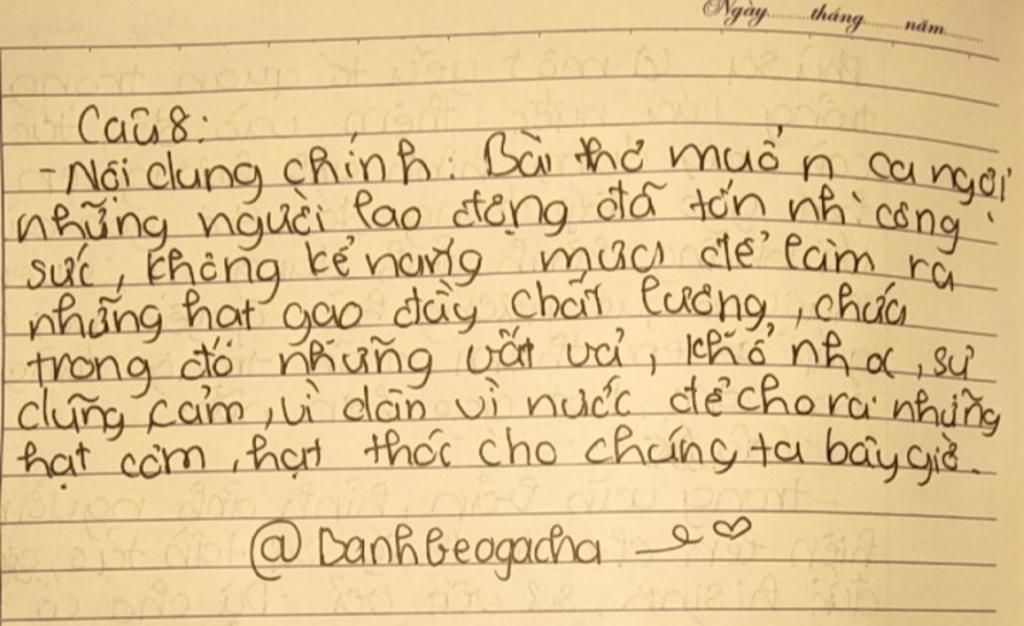 Ngày.........tháng.........năm.........
Câu 8:
- Nội dung chính: Bài thơ muốn ca ngợi
những người lao động đã tốn nh` công
sức, không kể nắng mưa để làm ra
những hạt gạo đầy chất lượng, chứa
trong đó những vất vả, khổ nhọc, sự
dũng cảm, vì dân vì nước để cho ra những
hạt cơm, hạt thóc cho chúng ta bây giờ.
@Banhbeogacha